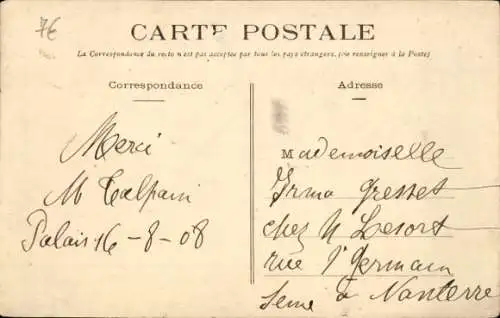 7€
CARTE POSTALE
(La Correspondance du recto n'est pas acceptée par tous les pays étrangers. (Se renseigner à la Poste)
Correspondance
Adresse
Merci
M Talpain
Palais 16-8-08
Mademoiselle
Irma Gresset
chez M Lesort
rue St Germain
à Nanterre
Seine